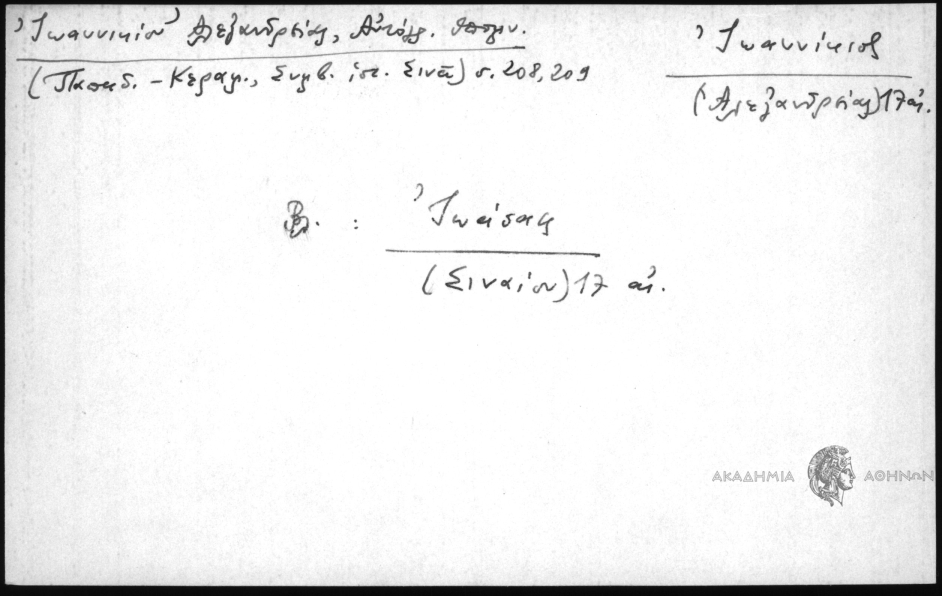 Ἰωαννικίου Ἀλεξανδρείας, Αὐτόγρ. ὑπομν.
(Παπαδ. - Κεραμ., Συμβ. ἱστ. Σινᾶ) σ. 208, 209
Ἰωαννίκιος
(Ἀλεξανδρείας) 17 αἰ.
Βλ. : Ἰωάσαφ
(Σιναΐου) 17 αἰ.
ΑΚΑΔΗΜΙΑ ΑΘΗΝΩΝ